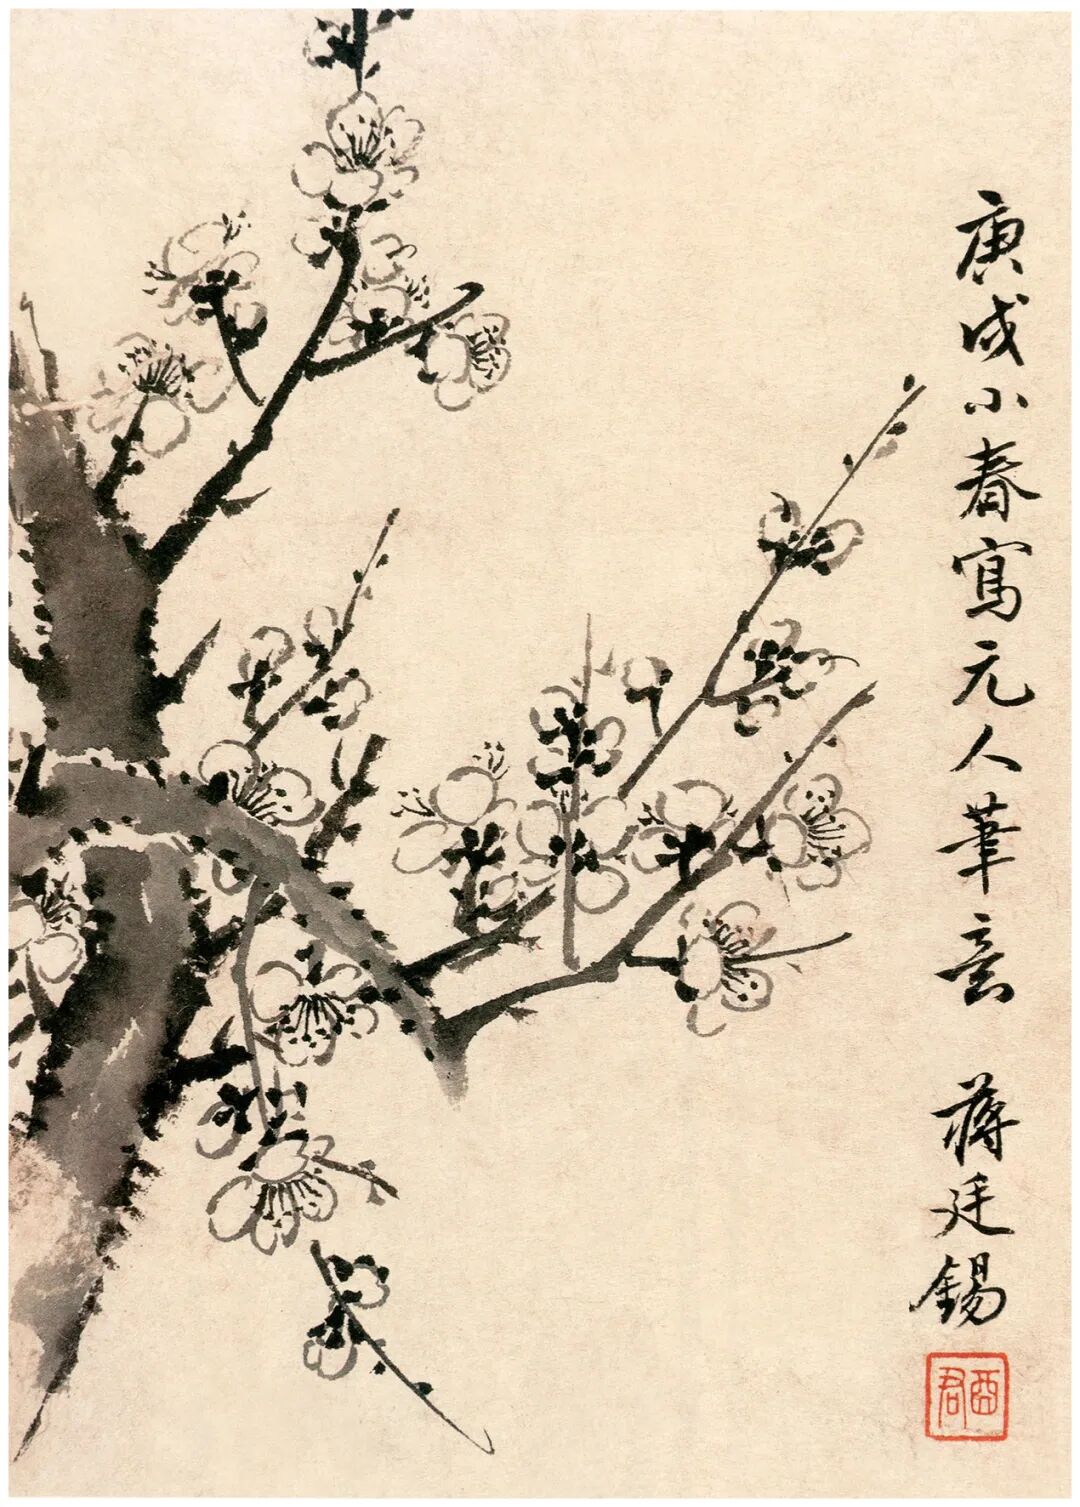 庚戌小春寫元人筆意
蔣廷錫
酉君